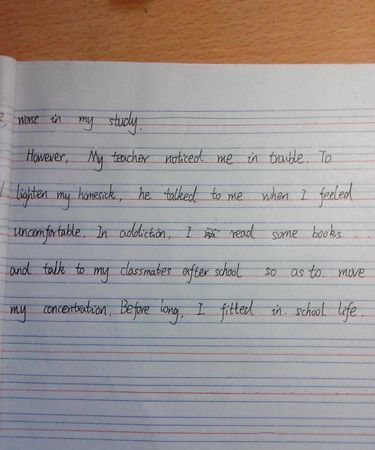 worse in my study.
However, My teacher noticed me in trouble. To
lighten my homesick, he talked to me when I feeled
uncomfortable. In addiction, I read some books
and talk to my classmates after school so as to move
my concentration. Before long, I fitted in school life.